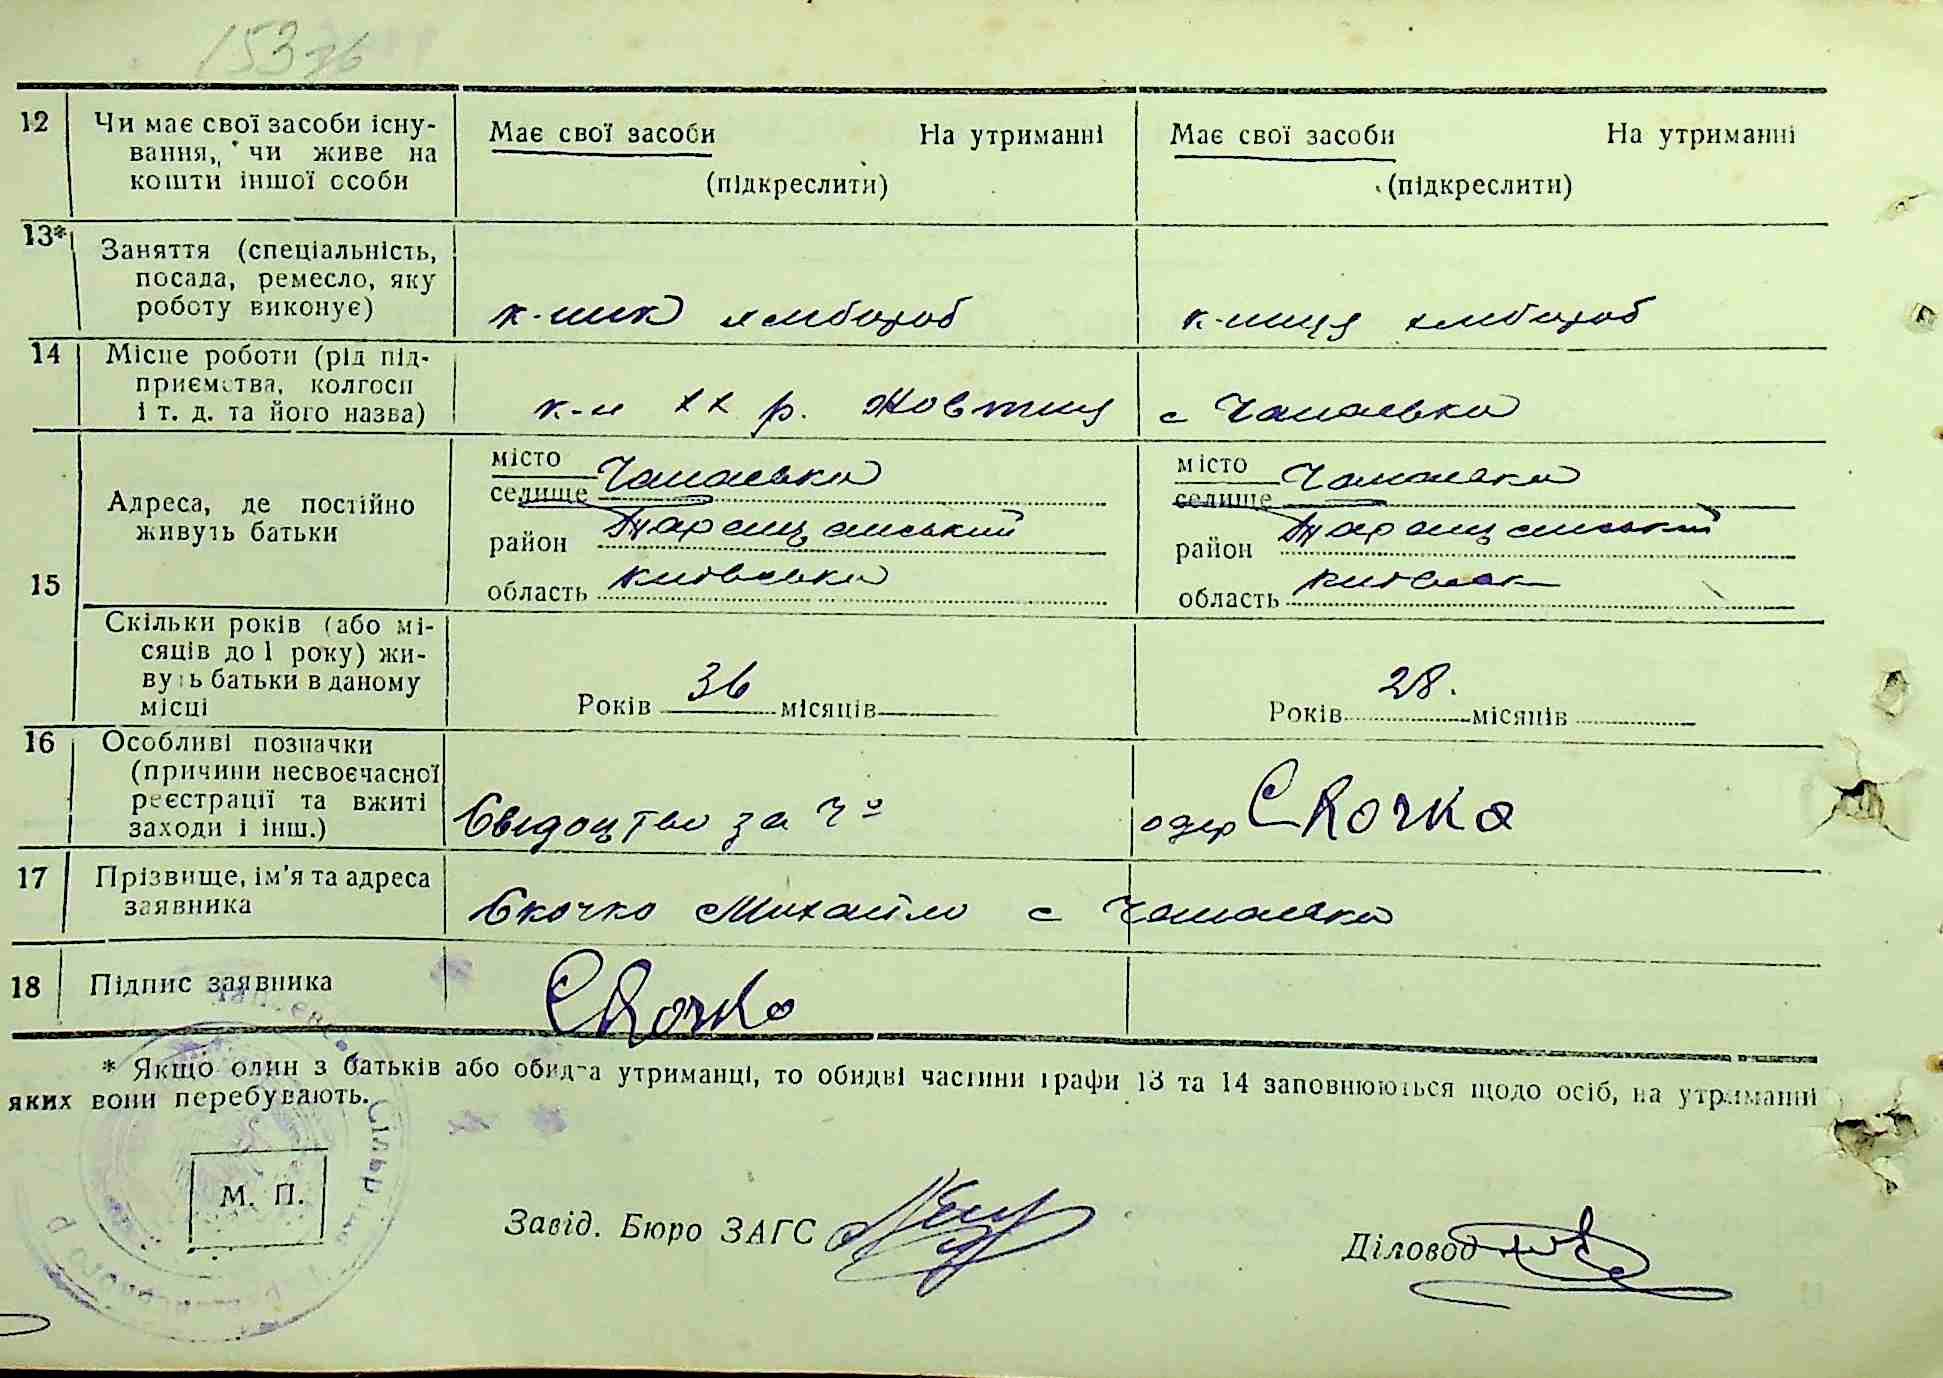 153 зв
12 Чи має свої засоби існу-
вання, чи живе на
кошти іншої особи
Має свої засоби На утриманні
(підкреслити)
Має свої засоби На утриманні
(підкреслити)
13* Заняття (спеціальність,
посада, ремесло, яку
роботу виконує)
к-ник хлібороб
к-ниця хлібороб
14 Місце роботи (рід під-
приємства, колгосп
і т. д. та його назва)
к-п ХХ р. Жовтня
с Чапаєвка
15 Адреса, де постійно
живуть батьки
місто
селище Чапаєвка
район Таращанський
область Київська
місто
селище Чапаєвка
район Таращанський
область Київськ
Скільки років (або мі-
сяців до 1 року) жи-
вуть батьки в даному
місці
Років 36 місяців
Років 28. місяців
16 Особливі позначки
(причини несвоєчасної
реєстрації та вжиті
заходи і інш.)
Свідоцтво за №
одер Скочко
17 Прізвище, ім'я та адреса
заявника
Скочко Михайло с Чапаєвка
18 Підпис заявника
Скочко
* Якщо один з батьків або обидва утриманці, то обидві частини графи 13 та 14 заповнюються щодо осіб, на утриманні
яких вони перебувають.
М. П.
Завід. Бюро ЗАГС
Діловод